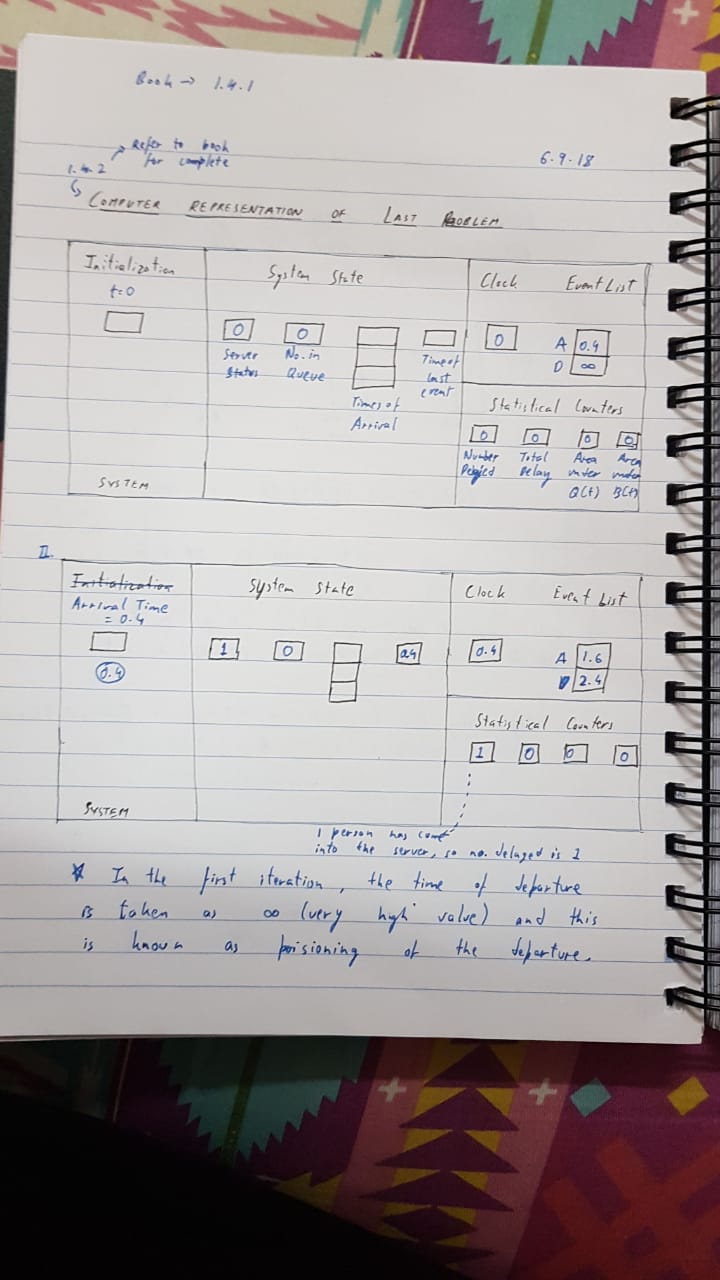 Book → 1.4.1
Refer to book
for complete
6.9.18
1.4.2
COMPUTER REPRESENTATION OF LAST PROBLEM
Initialization
t=0
System State
Clock
Event List
0
0
0
A 0.4
D ∞
Server
Status
No. in
Queue
Times of
Arrival
Time of
last
event
Statistical Counters
0 0 0 0
Number
Total
Delay
Area
under
Q(t)
Area
under
B(t)
SYSTEM
II.
Initialization
Arrival Time
= 0.4
System State
Clock
Event List
0.4
1
0
0.4
0.4
A 1.6
D 2.4
Statistical Counters
1 0 0 0
SYSTEM
1 person has come
into the server, so no. delayed is 1
* In the first iteration, the time of departure
is taken as ∞ (very high value) and this
is known as poisioning of the departure.